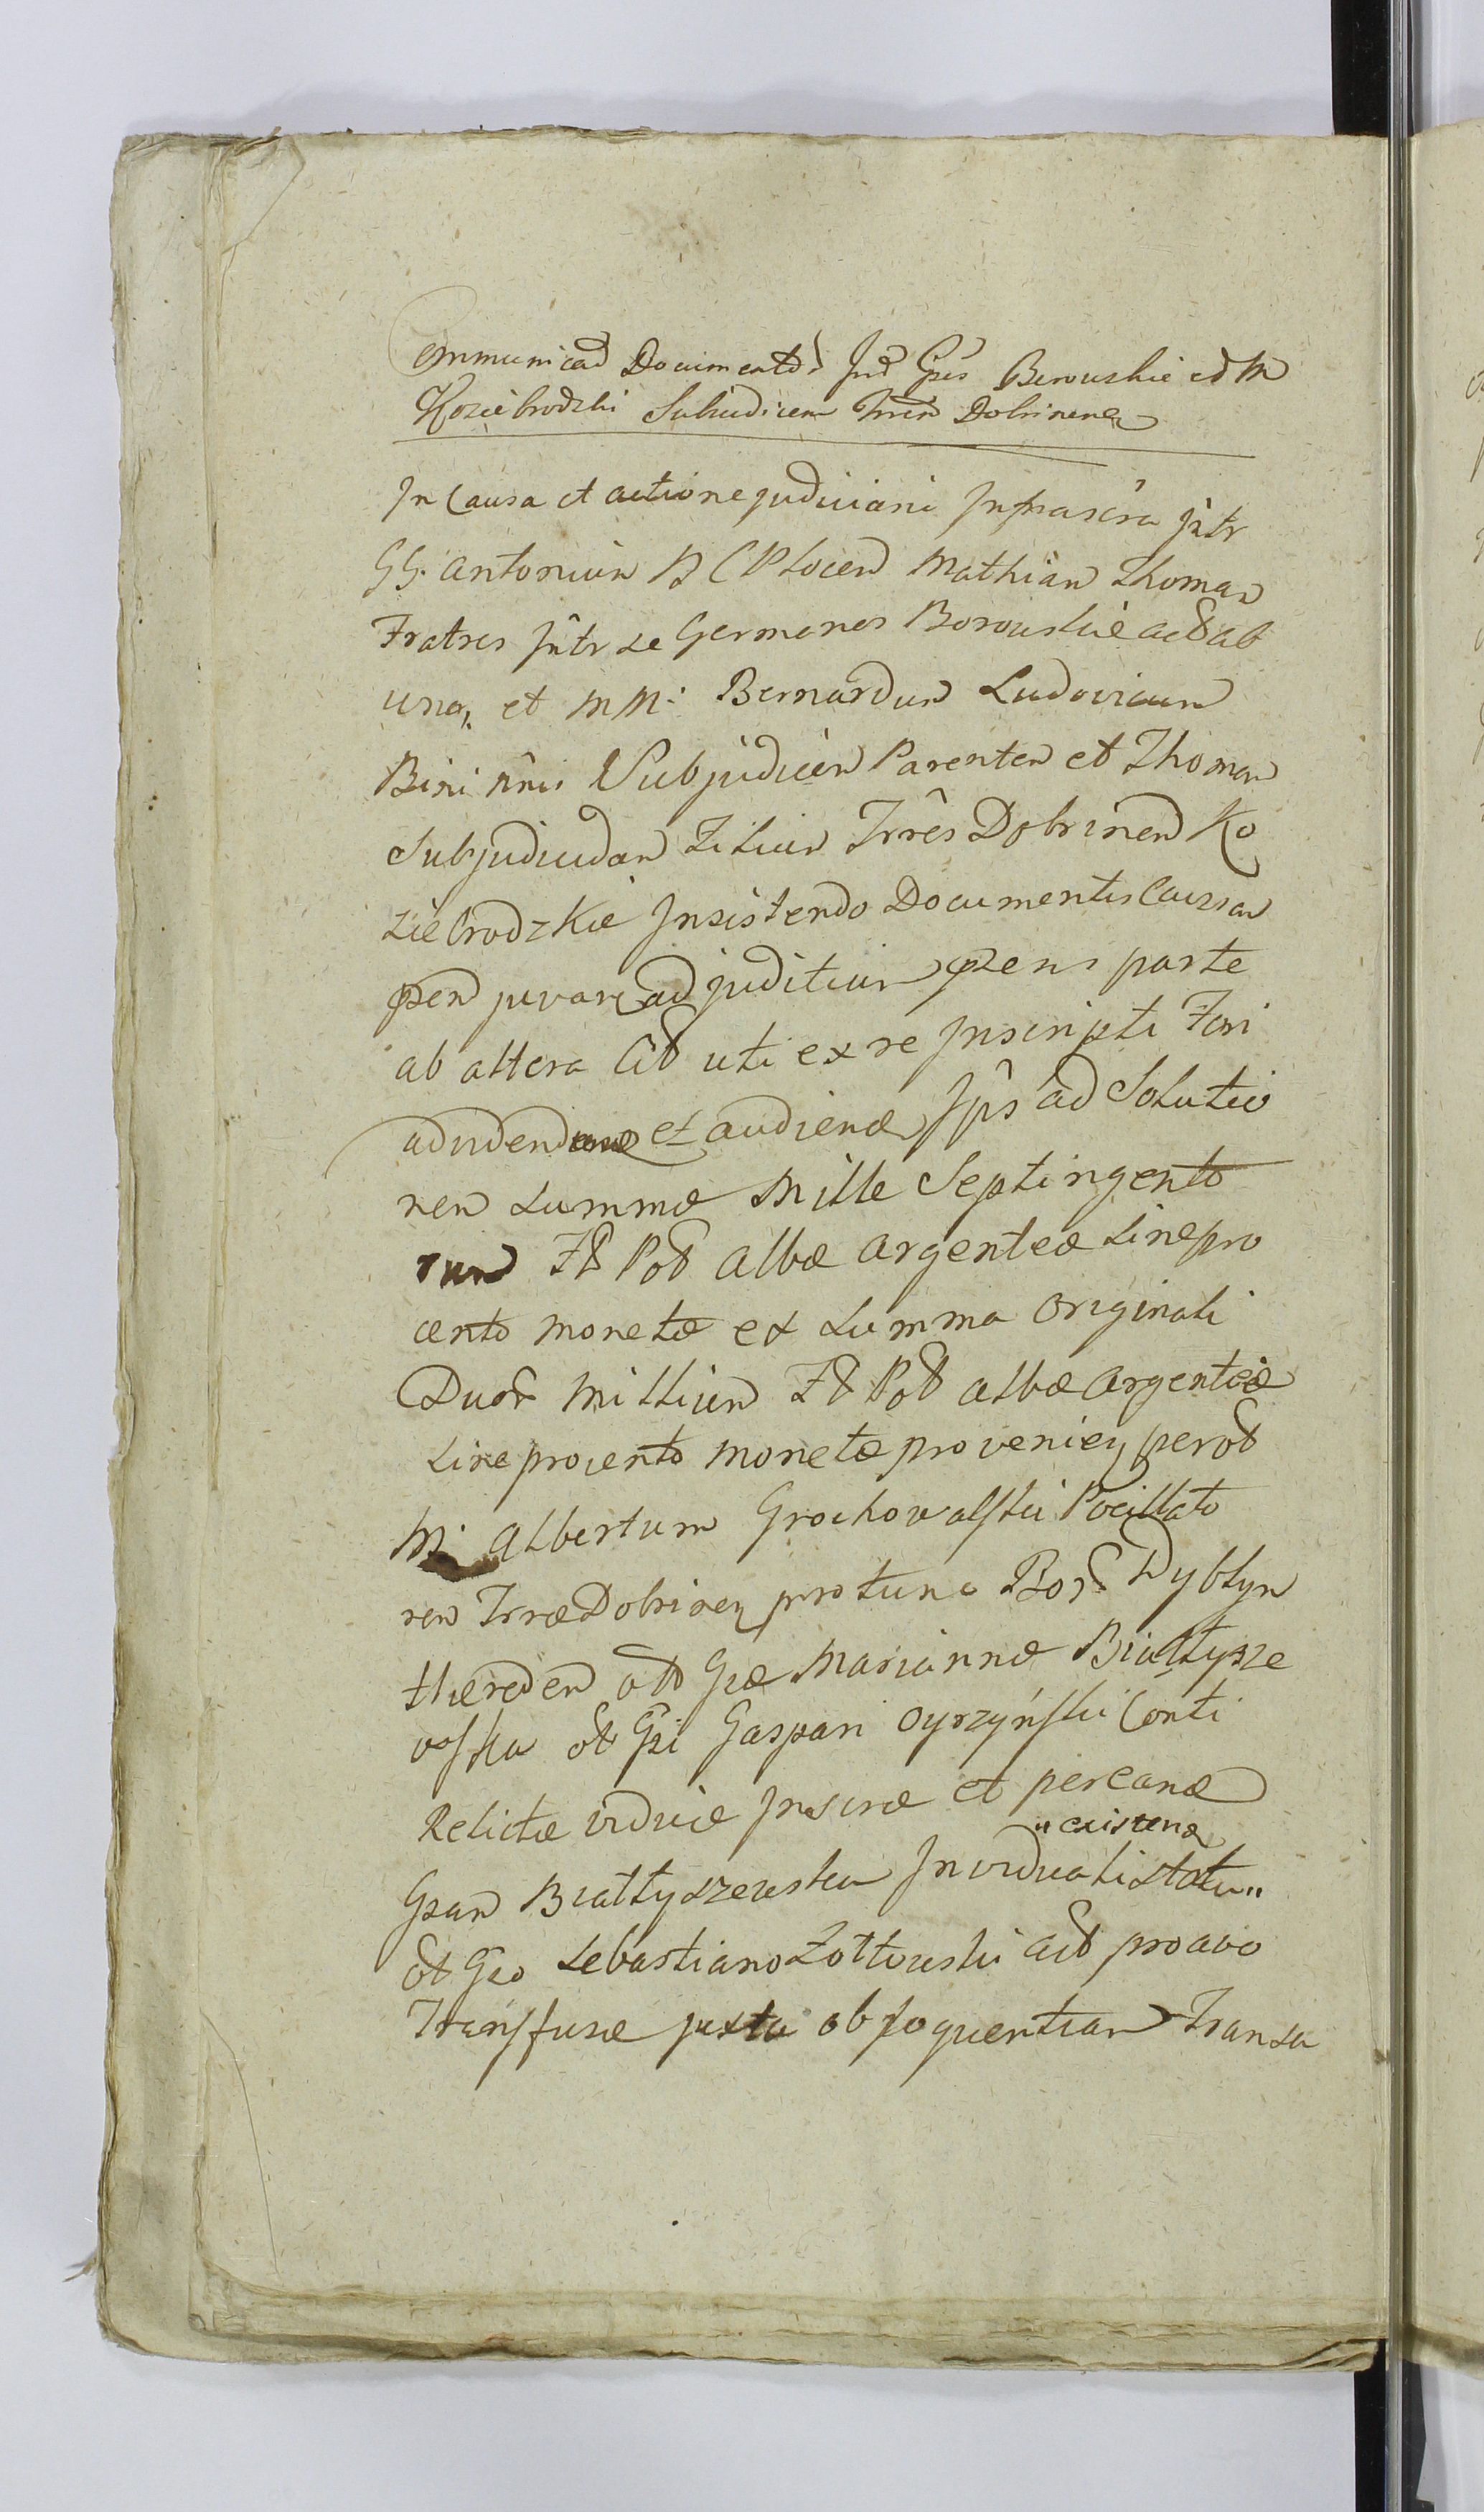 Communicaō Documentō Int Gsos Borowskie et M
Koziebrodzki Subiudicem Trrae Dobrinenẽ
In Causa et actione judiciarii Infrascra Intr
GG. Antonium B C Plocen Mathiam Thomam
Fratres Intr se Germanos Borowskie act ab
una, et MM: Bernardum Ludovicum
Bini nnis Subjudicem Parentem et Thomam
Subjudicidam Filium Trres Dobrinen Ko
ziebrodzkie Insistendo Documentis Causam
pñen juvare ad juditium pñens parte
ab altera Cit uti ex re Inscripti Fori
ad videndum et audiend Ips ad Solutio
nem summæ Mille Septingento
rum Fl Pol albæ argenteæ sine pro
cento monetæ ex summa originali
Duor Millium Fl Pol albæ argenteæ
sine procento monetæ provenien per ol
M: Albertum Grochowalski Pocillato
rem Trræ Dobrinen pro tunc Bor Dyblyn
Hæredem olt Gsæ Mariannæ Białłysze
wska ol Gsi Gaspari Oyrzyński Conti
Relictæ viduæ Inscræ et per eand
Gsam Białłyszewska In viduali statu "
" existens
ol Gso Sebastiano Zołtowski act pro avo
Transfusæ juxta obloquentiam Transa